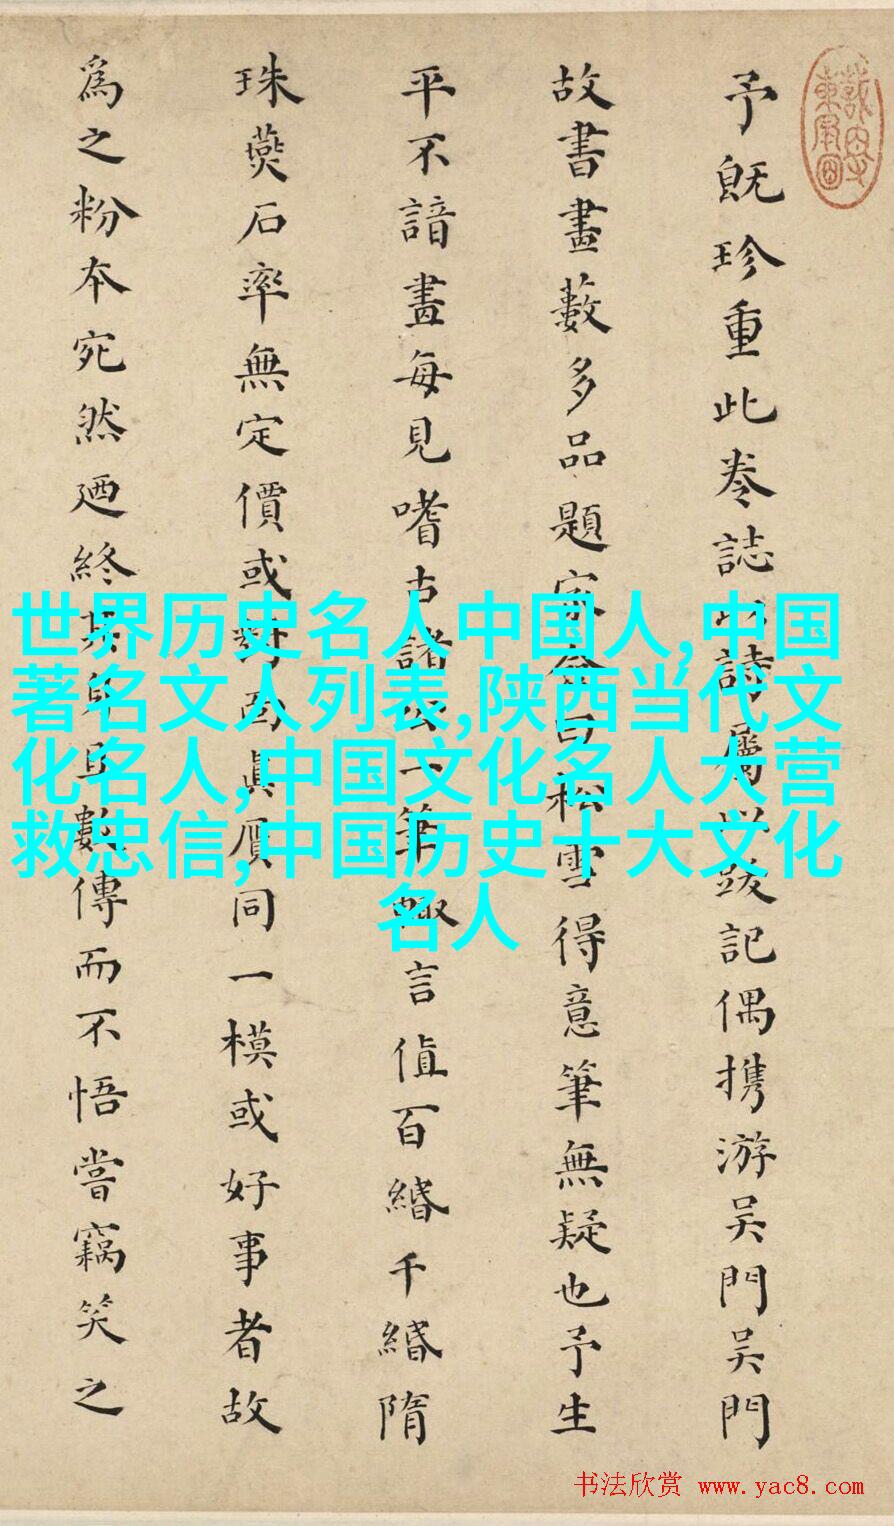 予旣珍重此卷誌以詩屬以跋記偶携游吳門吳門
故書畫藪多品題家僉曰松雪得意筆無疑也予生
平不諳畫每見嗜古諸公一筆輙言值百緡千緡隋
珠燕石率無定價或對面眞贋同一模或好事者故
為之粉本宛然廼終其身且數傳而不悟嘗竊笑之
世界历史名人中国人,中国
著名文人列表,陕西当代文
化名人,中国文化名人大营
救忠信,中国历史十大文化
名人
书法欣赏 www.yac8.com